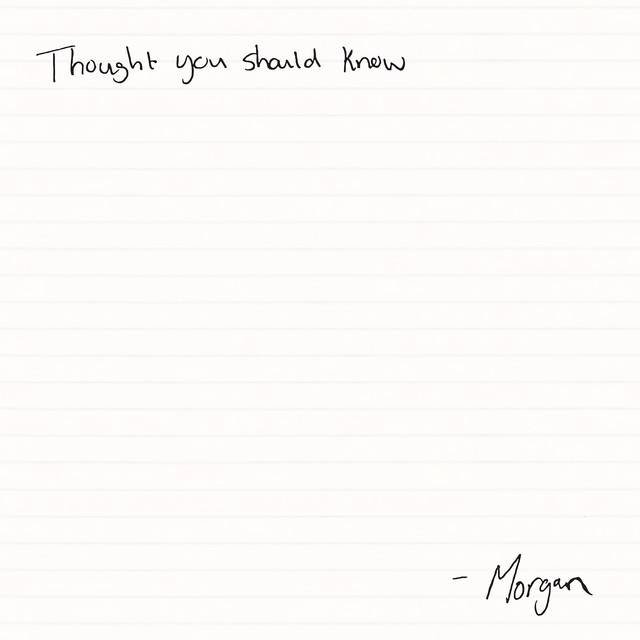 Thought you should know
- Morgan